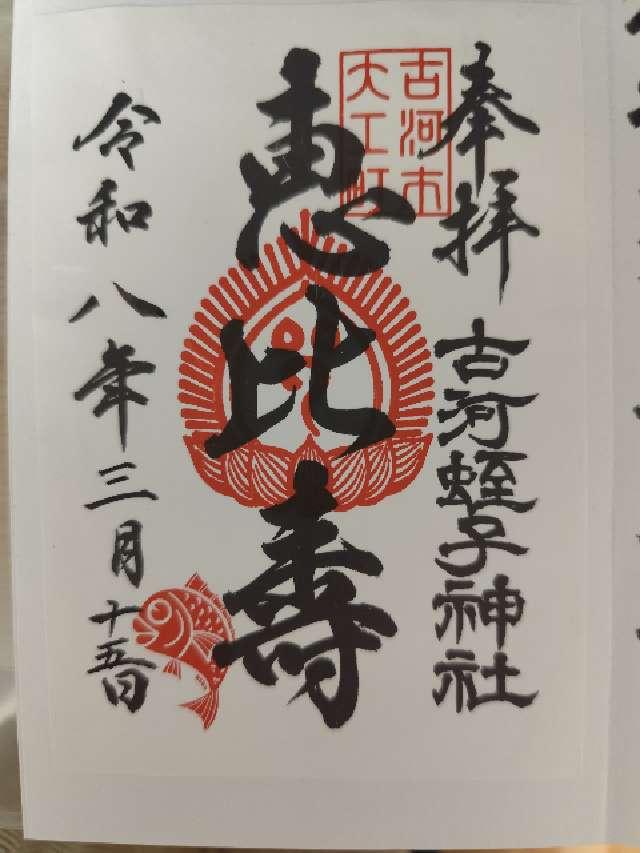 奉拝
古河市
大工町
古河蛭子神社
恵比壽
令和八年三月十五日